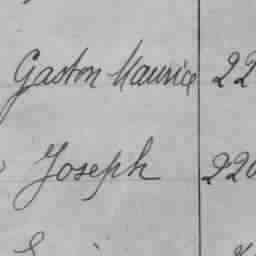 Gaston Maurice 22
Joseph 220